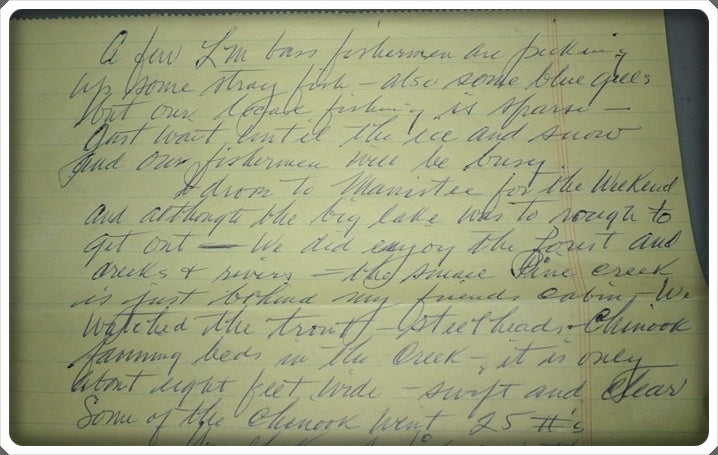 A few LM bass fishermen are picking
up some stray fish - also some blue gills
but our local fishing is sparse -
Just wait until the ice and snow
and our fishermen will be busy.
I drove to Manistee for the Weekend
and although the big lake was to rough to
get out - We did enjoy the forest and
creeks & rivers - the small Pine creek
is just behind my friends cabin - We
watched the trout - steelheads & Chinook
fanning beds in the Creek - it is only
about eight feet wide - swift and Clear
Some of the Chinook went 25 #'s